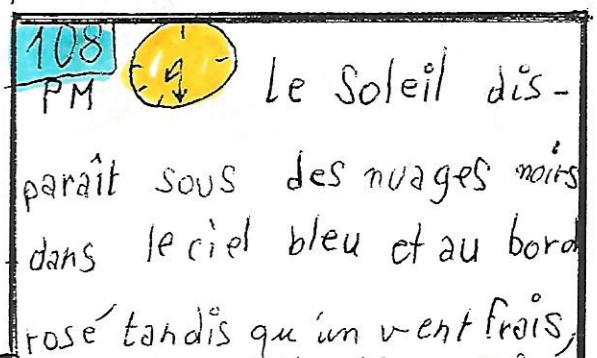 108
PM Le Soleil dis-
paraît sous des nuages noirs
dans le ciel bleu et au bord
rosé tandis qu'un vent frais,